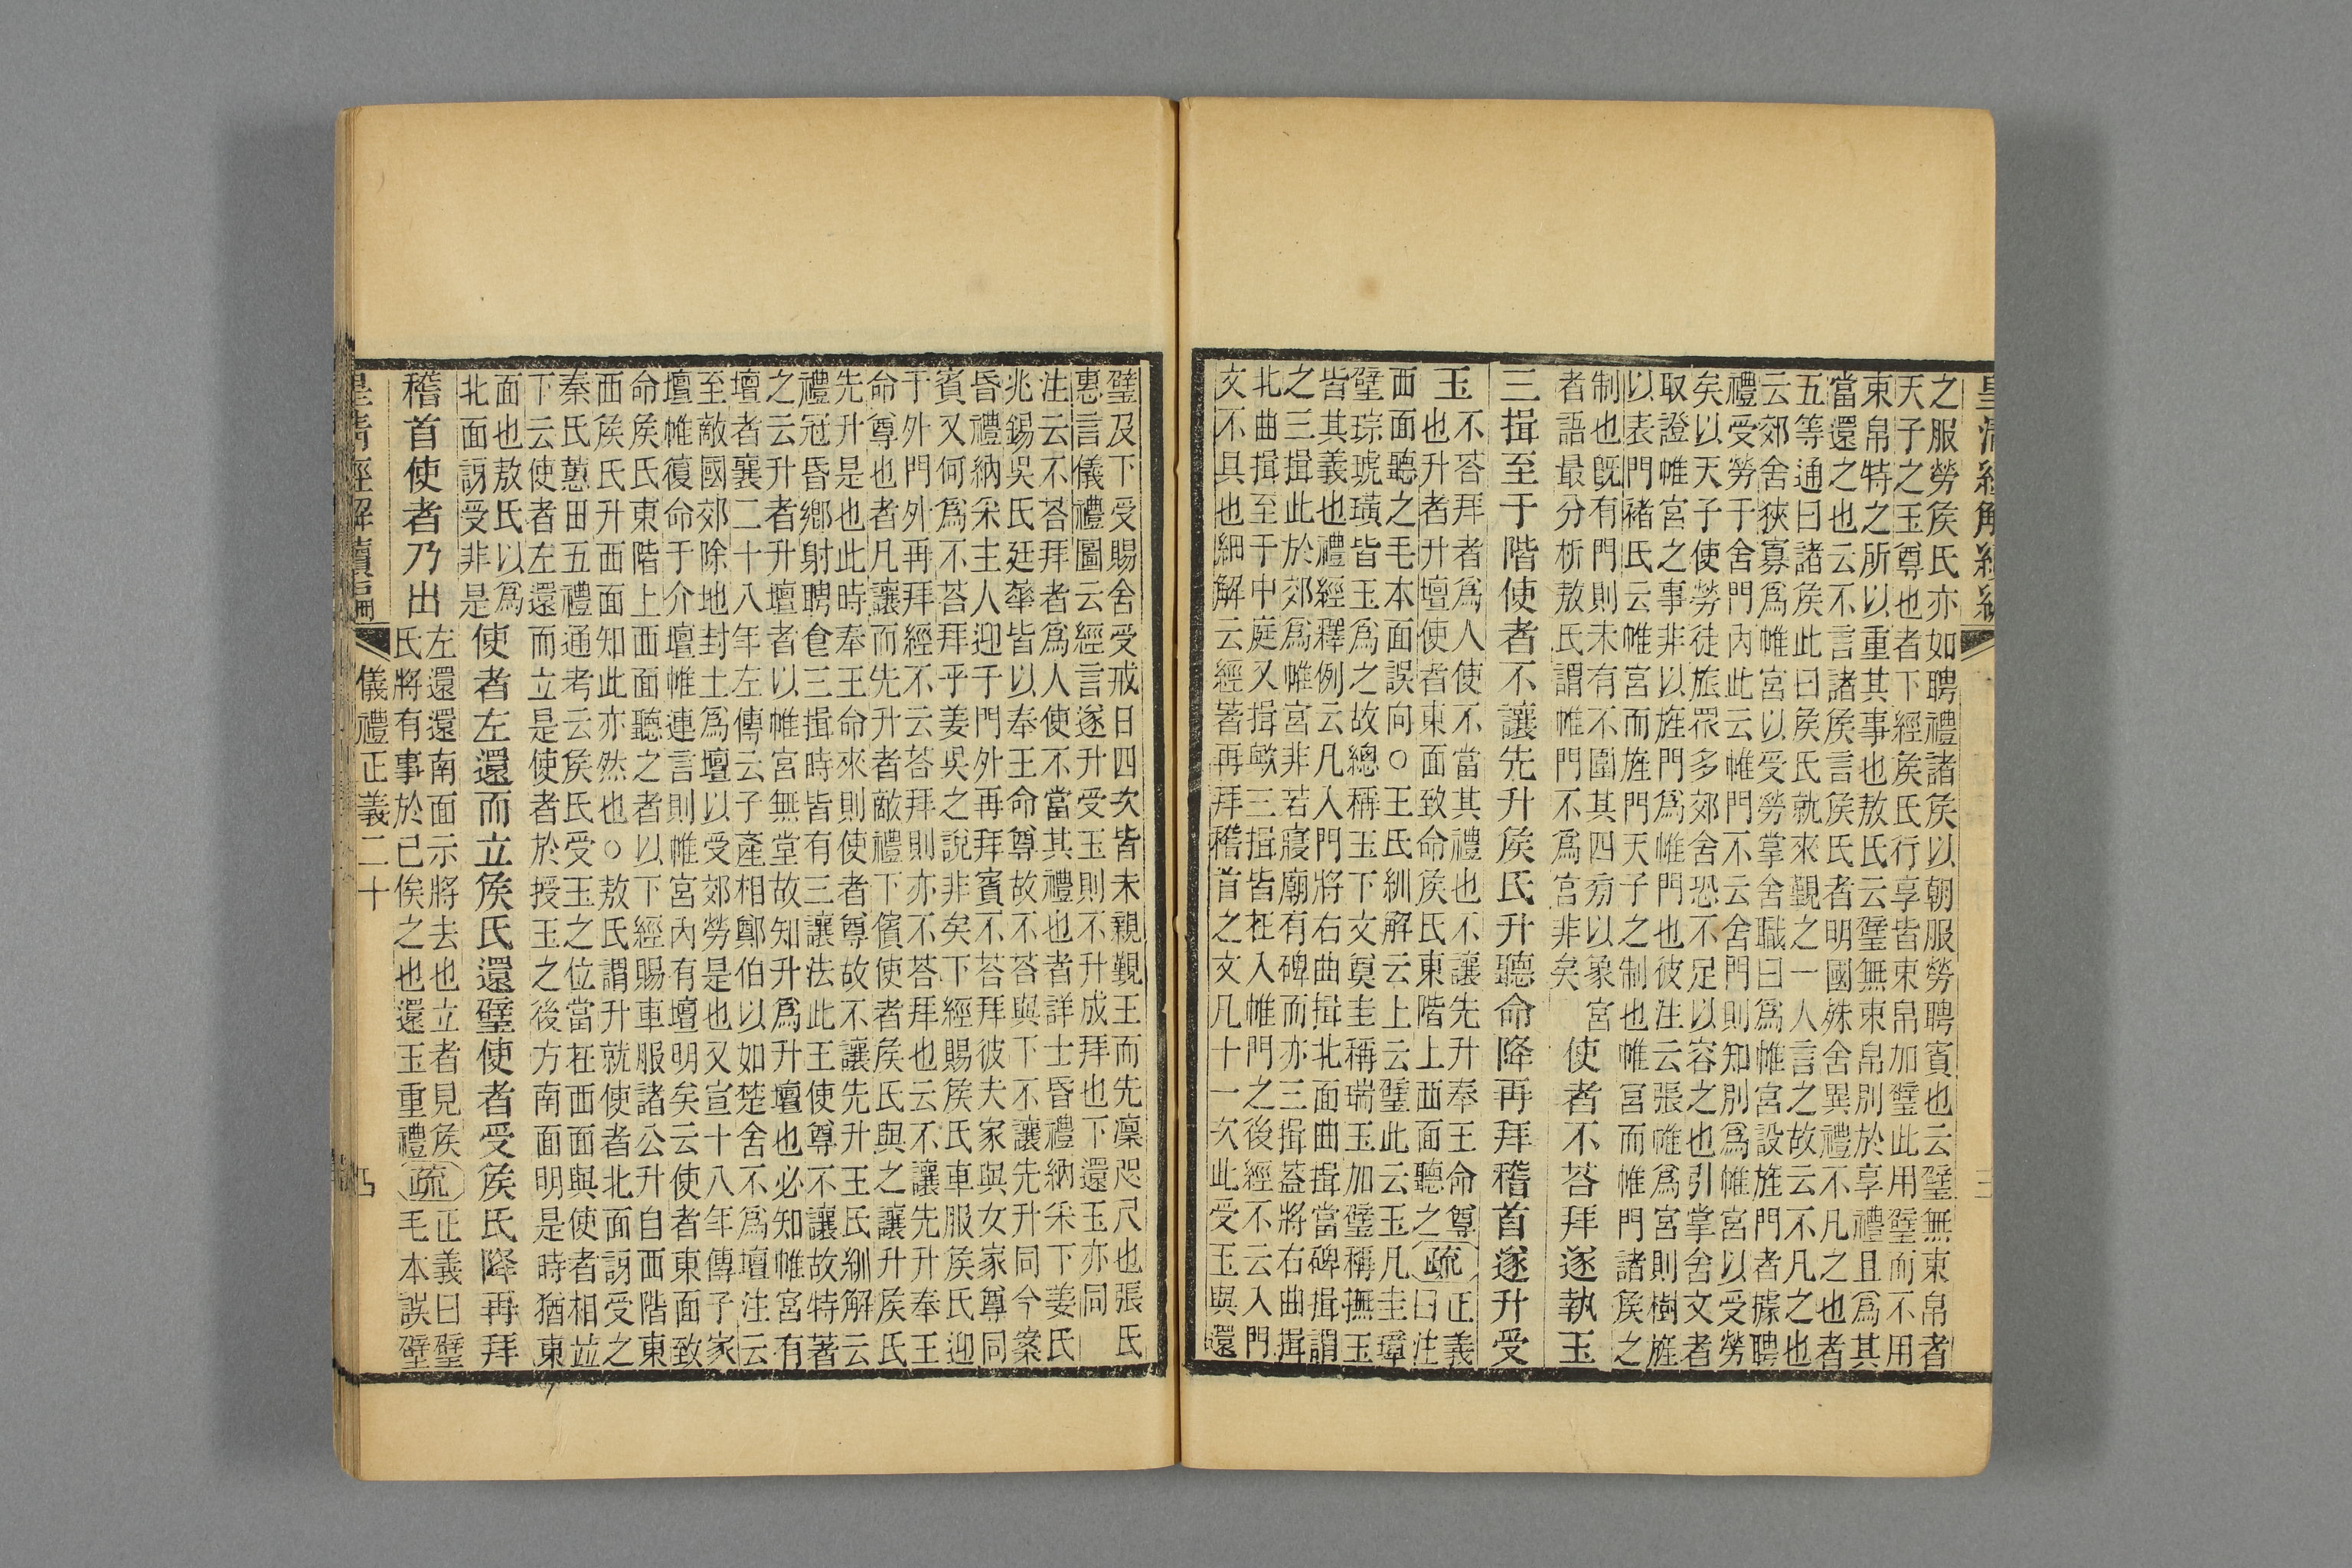 皇清經解續編 三
之服勞矦氏亦如聘禮諸矦以朝服勞聘賓也云璧無束帛者
天子之玉尊也者下經矦氏行享皆束帛加璧此用璧而不用
束帛特之所以重其事也敖氏云璧無束帛別於享禮且爲其
當還之也云不言諸矦言矦氏者明國殊舍異禮不凡之也者
五等通曰諸矦此曰矦氏就來覲之一人言之故云不凡之也
云郊舍狹寡爲帷宮以受勞掌舍職曰爲帷宮設旌門者據聘
禮受勞于舍門內此云帷門不云舍門則知別爲帷宮以受勞
矣以天子使勞徒旅眾多郊舍恐不足以容之也引掌舍文者
取證帷宮之事非以旌門爲帷門也彼注云張帷爲宮則樹旌
以表門褚氏云帷宮而旌門天子之制也帷宮而帷門諸矦之
制也旣有門則未有不圍其四旁以象宮
者語最分析敖氏謂帷門不爲宮非矣
使者不荅拜遂執玉
三揖至于階使者不讓先升矦氏升聽命降再拜稽首遂升受
玉
不荅拜者爲人使不當其禮也不讓先升奉王命尊
也升者升壇使者東面致命矦氏東階上西面聽之
疏
正義
曰注
西面聽之毛本面誤向○王氏紃解云上云璧此云玉凡圭璋
璧琮琥璜皆玉爲之故總稱玉下文奠圭稱瑞玉加璧稱撫玉
皆其義也禮經釋例云凡入門將右曲揖北面曲揖當碑揖謂
之三揖此於郊爲帷宮非若寢廟有碑而亦三揖葢將右曲揖
北曲揖至于中庭又揖歟三揖皆在入帷門之後經不云入門
文不具也紃解云經著再拜稽首之文凡十一次此受玉與還
璧及下受賜舍受戒日四次皆未親覲王而先凜咫尺也張氏
惠言儀禮圖云經言遂升受玉則不升成拜也下還玉亦同
注云不荅拜者爲人使不當其禮也者詳士昏禮納采下姜氏
兆錫吳氏廷華皆以奉王命尊故不荅與下不讓先升同今案
昏禮納采主人迎于門外再拜賓不荅拜彼夫家與女家尊同
賓又何爲不荅拜乎姜吳之說非矣下經賜矦氏車服矦氏迎
于外門外再拜經不云荅拜則亦不荅拜也云不讓先升奉王
命尊也者凡讓而先升者敵禮下儐使者矦氏與之讓升矦氏
先升是也此時奉王命來則使者尊故不讓先升王氏紃解云
禮冠昏鄉射聘食三揖時皆有三讓法此王使尊不讓故特著
之云升者升壇者以帷宮無堂故知升爲升壇也必知帷宮有
壇者襄二十八年左傳云子產相鄭伯以如楚舍不爲壇注云
至敵國郊除地封土爲壇以受郊勞是也又宣十八年傳子家
壇帷復命于介壇帷連言則帷宮內有壇明矣云使者東面致
命矦氏東階上西面聽之者以下經賜車服諸公升自西階東
西矦氏升西面知此亦然也○敖氏謂升就使者北面訝受之
秦氏蕙田五禮通考云矦氏受玉之位當在西面與使者相並
下云使者左還而立是使者於授玉之後方南面明是時猶東
面也敖氏以爲
北面訝受非是
使者左還而立矦氏還璧使者受矦氏降再拜
稽首使者乃出
左還還南面示將去也立者見矦
氏將有事於己俟之也還玉重禮
疏
正義曰璧
毛本誤璧
皇清經解續編 儀禮正義二十